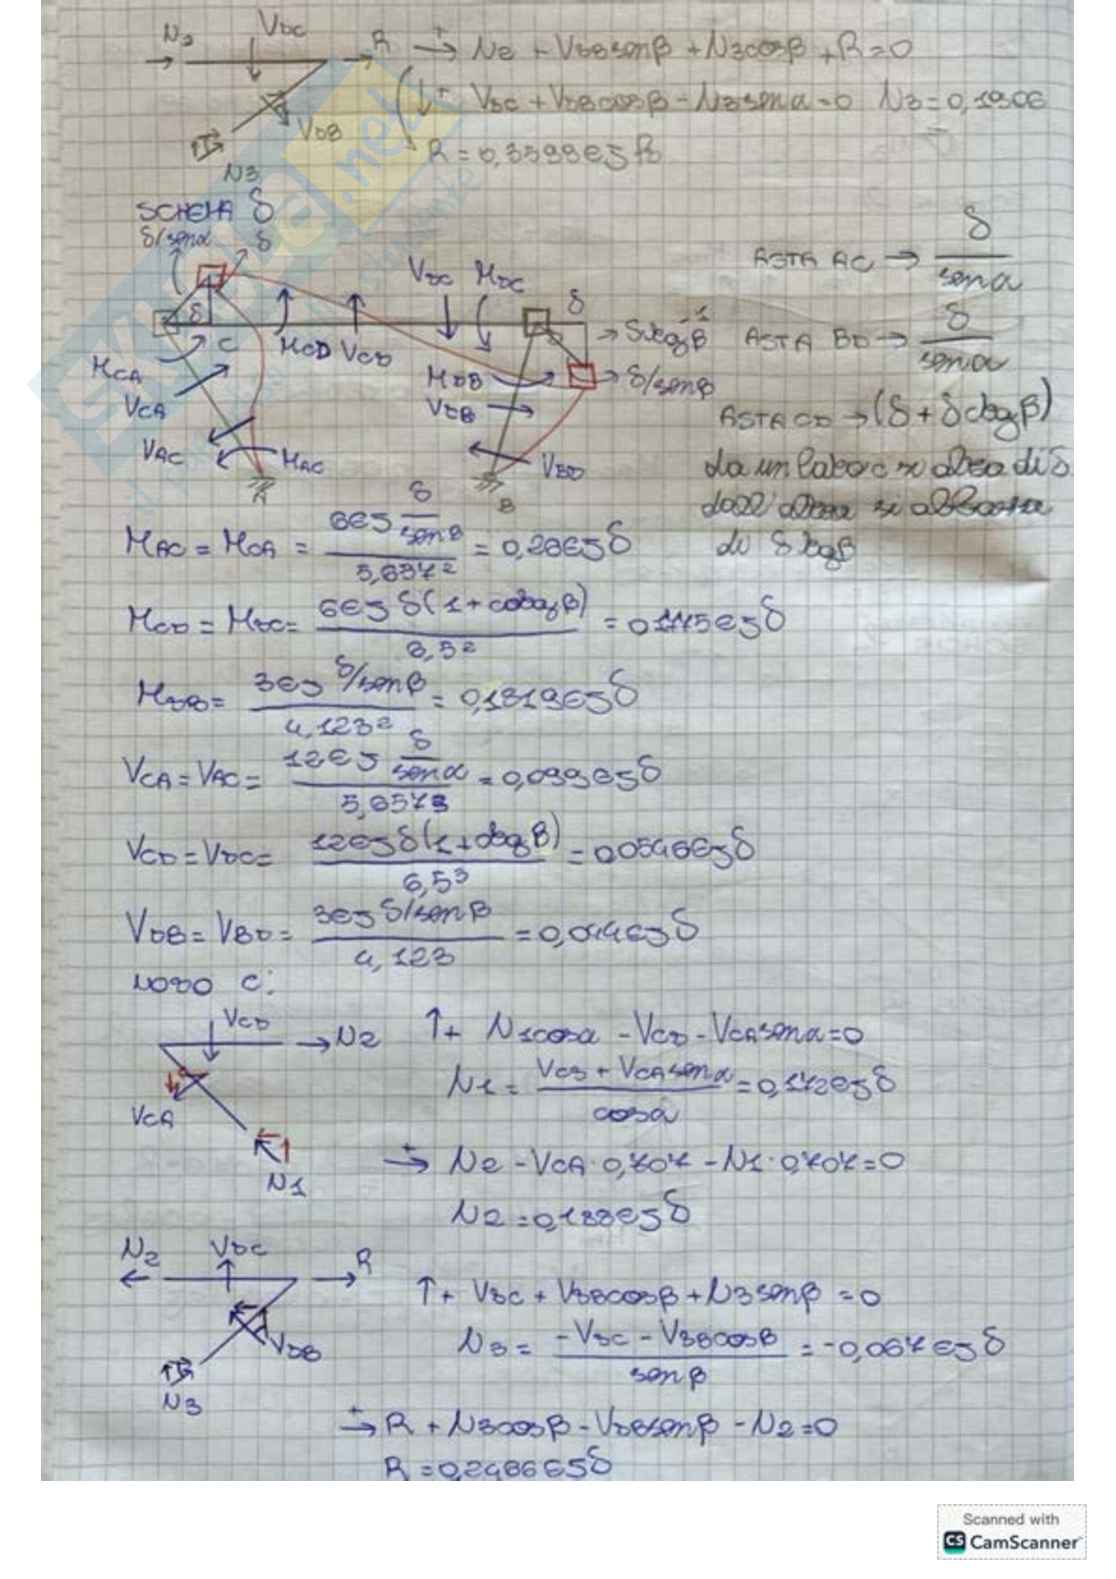 N2 VDC R →+ N2 + VDBsenβ + N3cosβ + R = 0
↓+ VDC + VDBcosβ - N3senα = 0 N3 = 0,190E
VDB
R = 0,3599EJβ
N3
SCHEMA δ
δ/senα δ
ASTA AC → δ/senα
VDC MDC δ
δctgβ ASTA BD → δ/senα
δ C MCD VCD
MCA MDB δ/senβ
VCA VDB ASTA CD → (δ + δctgβ)
VAC MAC VBD da un lato c si alza di δ
B dall'altra si abbassa
di δ tgβ
MAC = MCA = 6EJ δ/senβ / 5,657² = 0,26EJδ
MCD = MDC = 6EJ δ(1+cotgβ) / 6,5² = 0,1775EJδ
MDB = 3EJ δ/senβ / 4,123² = 0,1819EJδ
VCA = VAC = 12EJ δ/senα / 5,657³ = 0,093EJδ
VCD = VDC = 12EJδ(1+ctgβ) / 6,5³ = 0,0546EJδ
VDB = VBD = 3EJ δ/senβ / 4,123 = 0,044EJδ
NODO C:
VCD → N2 ↑+ N1cosα - VCD - VCAsenα = 0
N1 = VCD + VCAsenα / cosα = 0,172EJδ
VCA
→+ N2 - VCA·0,707 - N1·0,707 = 0
N1
N2 = 0,188EJδ
N2 VDC R
↑+ VDC + VDBcosβ + N3senβ = 0
N3 = -VDC - VDBcosβ / senβ = -0,067EJδ
VDB
N3
→+ R + N3cosβ - VDBsenβ - N2 = 0
R = 0,2486EJδ
Scanned with
CS CamScanner